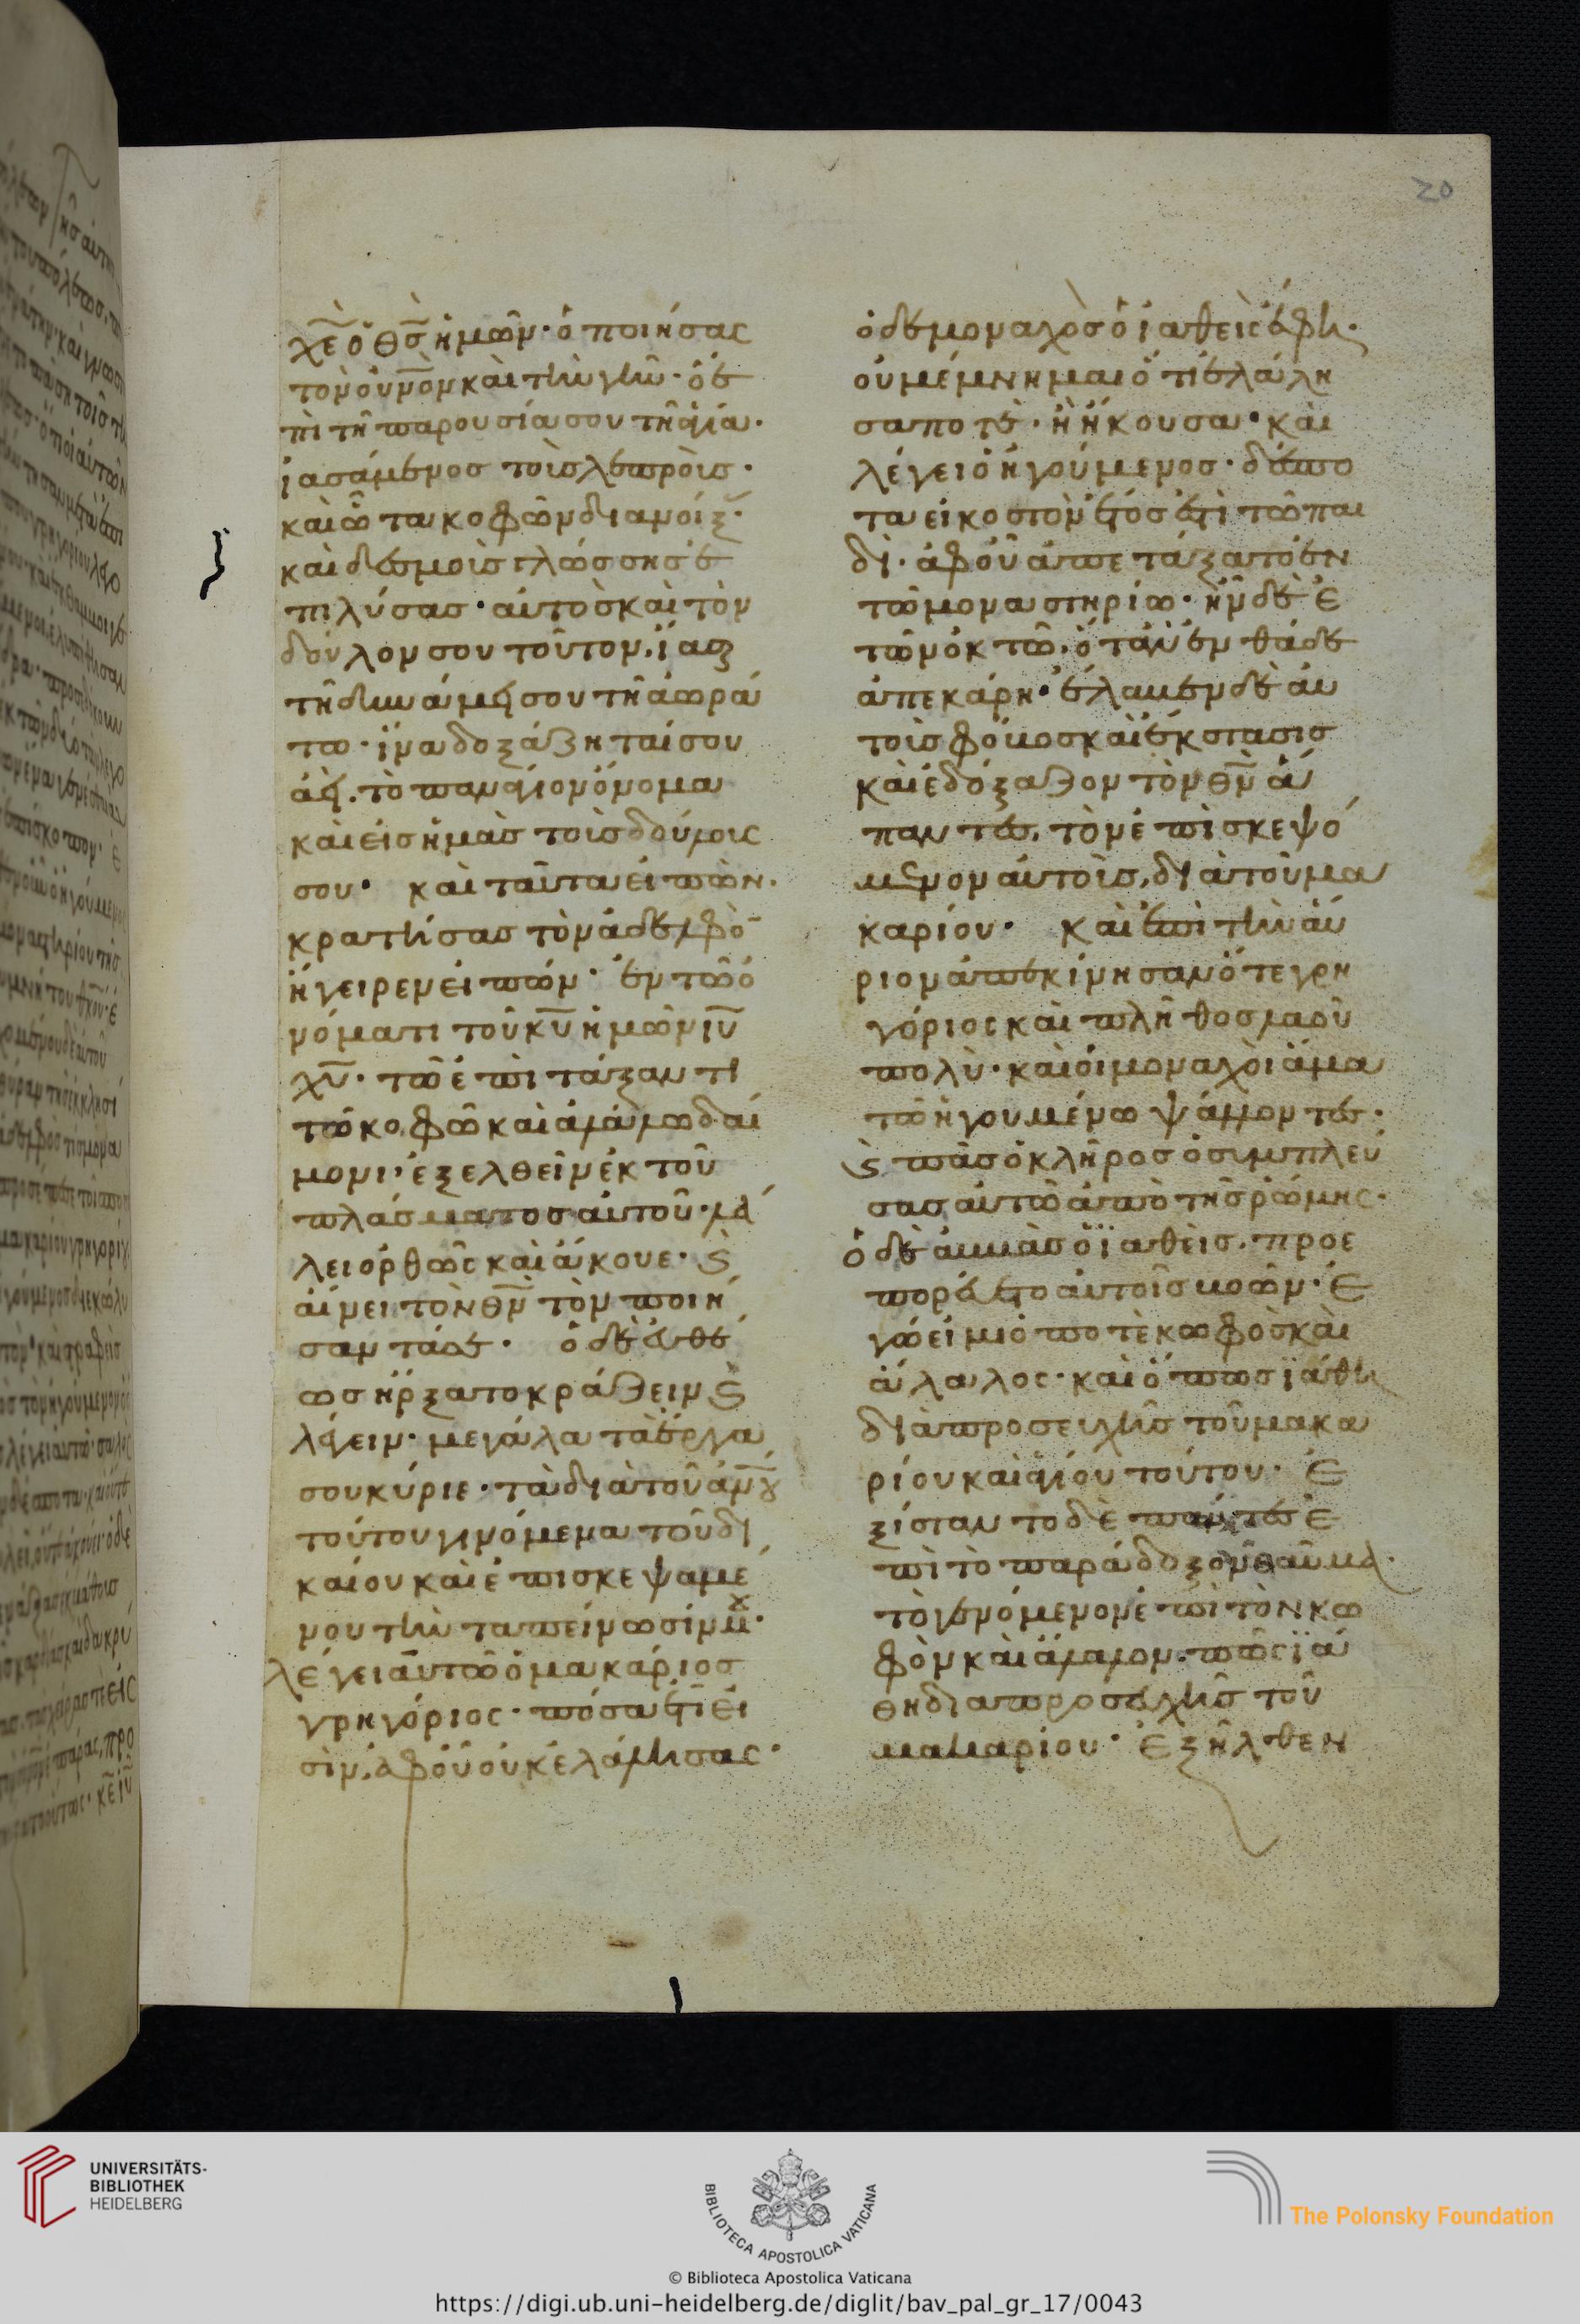 20
χ̅ε̅ ὁ θ̅ς̅ ἡμῶν· ὁ ποιήσας
τὸν οὐ̅ν̅ο̅ν καὶ τὴν γῆν· ὁ ἐ
πὶ τῆ παρουσία σου τῆ ἁγία·
ἰασάμενος τοὺς λεπροὺς·
καὶ ὦτα κοφῶν διανοίξ
καὶ δεσμοὺς γλώσσης ἐ
πιλύσας· αὐτὸς καὶ τὸν
δοῦλον σου τοῦτον, ἴασ
τῆ δυνάμει σου τῆ ἀωρά
τω· ἵνα δοξάζηταί σου
ἀεὶ, τὸ πανάγιον ὄνομα
καὶ εἰς ἡμᾶς τοὺς δούλους
σου· καὶ ταῦτα εἰπὼν·
κρατήσας τὸν ἀδελφὸ
ἤγειρεν εἰπών· ἐν τῶ ὀ
νόματι τοῦ κ̅υ̅ ἡμῶν ι̅υ̅
χ̅υ̅· τῶ ἐπιτάξαντι
τῶ κοφῶ καὶ ἀλάλω δαί
μονι· ἐξελθεῖν ἐκ τοῦ
πλάσματος αὐτοῦ· λά
λει ὀρθῶς καὶ ἄκουε· ϗ
αἴνει τὸν θ̅ν̅ τὸν ποιή
σαντά σε· ὁ δὲ εὐθέ
ως ἤρξατο κράζειν ϗ
λέγειν· μεγάλα τὰ ἔργα
σου κύριε· τὰ διὰ τοῦ ἀν̅ο̅υ
τούτου γινόμενα τοῦ δι
καίου καὶ ἐπισκεψαμέ
νου τὴν ταπείνωσίν μου·
λέγει αὐτῶ ὁ μακάριος
γρηγόριος· πόσα ἔτι εἰ
σὶν, ἀφοῦ οὐκ ἐλάλησας·
ὁ δὲ μοναχὸς ὁ ἰαθεὶς ἔφη·
οὐ μέμνημαι ὅτι ἐλάλη
σα ποτὲ· ἢ ἤκουσα· καὶ
λέγει ὁ ἡγούμενος· δέσπο
τα εἰκοστὸν ἔτος ἐστὶ τῶ παι
δὶ· ἀφοῦ ἀπετάξατο ἐν
τῶ μοναστηρίω· ἦν δὲ ἐ
τῶν ὀκτῶ· ὅταν ἐνθάδε
ἀπεκάρη· ἔλαβεν δὲ αὐ
τοὺς φόβος καὶ ἔκστασις
καὶ ἐδόξαζον τὸν θ̅ν̅ ἅ
παντες, τὸν ἐπισκεψό
μενον αὐτοὺς, διὰ τοῦ μα
καρίου· καὶ ἐπὶ τὴν αὔ
ριον ἀπεκίνησαν ὅ τε γρη
γόριος καὶ πλῆθος λαοῦ
πολὺ· καὶ οἱ μοναχοὶ ἅμα
τῶ ἡγουμένω ψάλλοντες·
ϗ πᾶς ὁ κλῆρος ὁ συμπλεύ
σας αὐτῶ ἀπὸ τῆς ῥώμης·
ὁ δὲ ἀββὰς ὁ ἰαθεὶς· προε
πορεύετο αὐτοῖς βοῶν· ἐ
γώ εἰμι ὁ ποτὲ κωφὸς καὶ
ἄλαλος· καὶ ὅπως ἰάθη
διὰ προσευχῆς τοῦ μακα
ρίου καὶ ἁγίου τούτου· ἐ
ξίσταντο δὲ πάντες ἐ
πὶ τὸ παράδοξον θαῦμα·
τὸ γενόμενον ἐπὶ τὸν κω
φὸν καὶ ἄλαλον, πῶς ἰά
θη διὰ προσευχῆς τοῦ
μακαρίου· ἐξῆλθεν
UNIVERSITÄTS-
BIBLIOTHEK
HEIDELBERG
BIBLIOTECA APOSTOLICA VATICANA
The Polonsky Foundation
© Biblioteca Apostolica Vaticana
https://digi.ub.uni-heidelberg.de/diglit/bav_pal_gr_17/0043